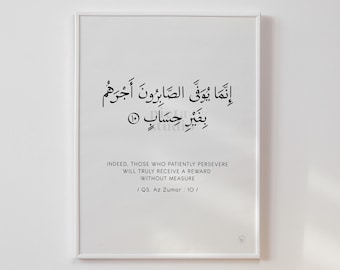 إِنَّمَا يُوَفَّى الصَّابِرُونَ أَجْرَهُم
بِغَيْرِ حِسَابٍ ١٠
INDEED, THOSE WHO PATIENTLY PERSEVERE
WILL TRULY RECEIVE A REWARD
WITHOUT MEASURE
/ QS. Az Zumar : 10 /